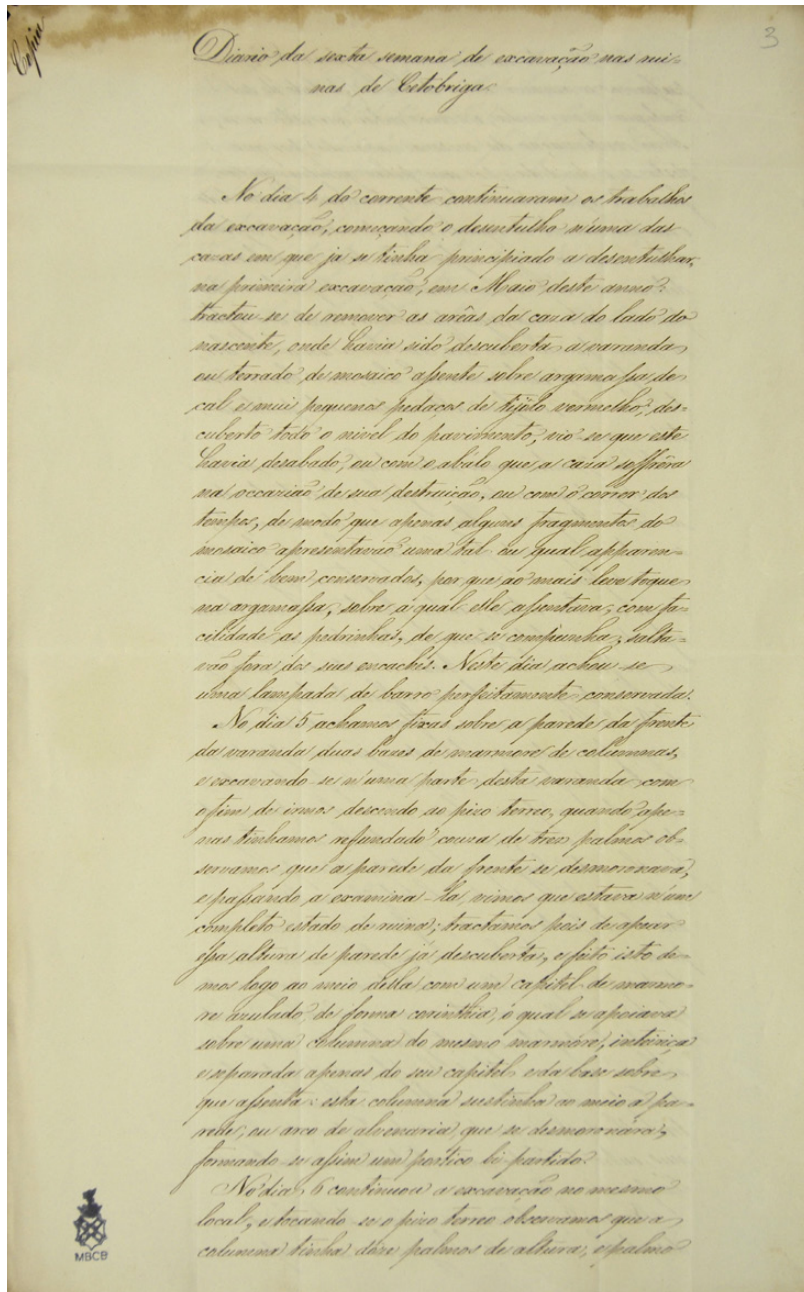 Copia
3
Diario da sexta semana de excavação nas rui-
nas de Cetobriga.
No dia 4 do corrente continuaram os trabalhos
da excavação, começando o desentulho n'uma das
cazas em que ja se tinha principiado a desentulhar,
na primeira excavação, em Maio deste anno:
tractou-se de remover as arêas da caza do lado do
nascente, onde havia sido descuberta a varanda
ou terrado de mosaico assente sobre argamassa de
cal e mui pequenos pedaços de tijolo vermelho; des-
cuberto todo o nivel do pavimento, vio-se que este
havia desabado, ou com o abalo que a caza soffrêra
na occazião de sua destruição, ou com o correr dos
tempos, de modo que apenas alguns fragmentos do
mosaico apresentavão uma tal ou qual apparen-
cia de bem conservados, por que ao mais leve toque
na argamassa, sobre a qual elle assentava, com fa-
cilidade as pedrinhas, de que se compunha, salta-
vão fora dos sias encaches. Neste dia achou-se
uma lampada de barro perfeitamente conservada.
No dia 5 achamos fixas sobre a parede da frente
da varanda duas bazes de marmore de columnas,
e excavando-se n'uma parte desta varanda com
o fim de irmos descendo ao pizo terreo, quando ape-
nas tinhamos refundado couza de tres palmos ob-
servamos que a parede da frente se desmoronava,
e passando a examina-la, vimos que estava n'um
completo estado de ruina; tractamos pois de apear
essa altura de parede já descuberta, e feito isto de-
mos logo ao meio della com um capitel de marmo-
re azulado de forma corinthia, o qual se apoiava
sobre uma columna do mesmo marmore, inteiriça
e separada apenas do seu capitel e da base sobre
que assenta: esta columna sustinha ao meio a pa-
rede, ou arco de alvenaria, que se desmoronára,
formando-se assim um portico bi-partido.
No dia 6 continuou a excavação no mesmo
local, e tocando-se o pizo terreo observamos que a
columna tinha doze palmos de altura, e palmo
MBCB